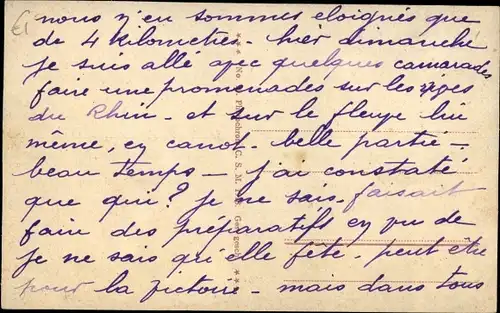 nous n'en sommes eloignés que
de 4 kilometres - hier dimanche
je suis allé avec quelques camarades
faire une promenades sur les rives
du Rhin - et sur le fleuve lui
même, en canot - belle partie -
beau temps - j'ai constaté
que qui? je ne sais - faisait
faire des préparatifs en vu de
je ne sais qu'elle fête - peut etre
pour la victoire - mais dans tous